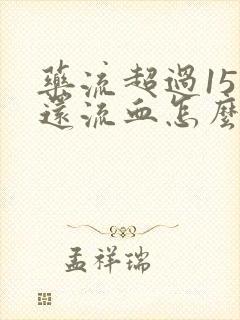 藥流超過15
還流血怎麼
孟祥瑞